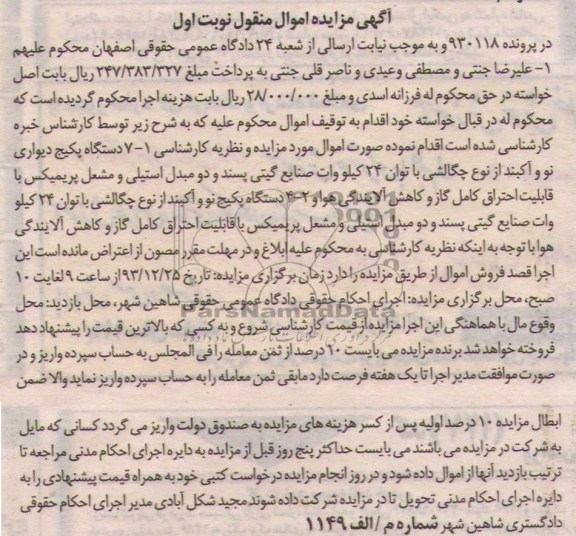 آگهی مزایده اموال منقول نوبت اول
در پرونده ۹۳۰۱۱۸ و به موجب نیابت ارسالی از شعبه ۲۴ دادگاه عمومی حقوقی اصفهان محکوم علیهم
۱- علیرضا جنتی و مصطفی وعیدی و ناصر قلی جنتی به پرداخت مبلغ ۲۴۷/۳۸۳/۳۲۷ ریال بابت اصل
خواسته در حق محکوم له فرزانه اسدی و مبلغ ۲۸/۰۰۰/۰۰۰ ریال بابت هزینه اجرا محکوم گردیده است که
محکوم له در قبال خواسته خود اقدام به توقیف اموال محکوم علیه که به شرح زیر توسط کارشناس خبره
کارشناسی شده است اقدام نموده صورت اموال مورد مزایده و نظریه کارشناسی ۱-۷ دستگاه پکیج دیواری
نو و آکبند از نوع چگالشی با توان ۲۴ کیلو وات صنایع گیتی پسند و دو مبدل استیلی و مشعل پریمیکس با
قابلیت احتراق کامل گاز و کاهش آلایندگی هوا و ۲-۴ دستگاه پکیج نو و آکبند از نوع چگالشی با توان ۲۴ کیلو
وات صنایع گیتی پسند و دو مبدل استیلی و مشعل پریمیکس با قابلیت احتراق کامل گاز و کاهش آلایندگی
هوا با توجه به اینکه نظریه کارشناسی به محکوم علیه ابلاغ و در مهلت مقرر مصون از اعتراض مانده است این
اجرا قصد فروش اموال از طریق مزایده را دارد زمان برگزاری مزایده: تاریخ ۹۳/۱۲/۲۵ از ساعت ۹ لغایت ۱۰
صبح، محل برگزاری مزایده: اجرای احکام حقوقی دادگاه عمومی حقوقی شاهین شهر، محل بازدید: محل
وقوع مال با هماهنگی این اجرا مزایده از قیمت کارشناسی شروع و به کسی که بالاترین قیمت را پیشنهاد دهد
فروخته خواهد شد برنده مزایده می بایست ۱۰ درصد از ثمن معامله را فی المجلس به حساب سپرده واریز و در
صورت موافقت مدیر اجرا تا یک هفته فرصت دارد مابقی ثمن معامله را به حساب سپرده واریز نماید والا ضمن
ابطال مزایده ۱۰ درصد اولیه پس از کسر هزینه های مزایده به صندوق دولت واریز می گردد کسانی که مایل
به شرکت در مزایده می باشند می بایست حداکثر پنج روز قبل از مزایده به دایره اجرای احکام مدنی مراجعه تا
ترتیب بازدید آنها از اموال داده شود و در روز انجام مزایده درخواست کتبی خود به همراه قیمت پیشنهادی را به
دایره اجرای احکام مدنی تحویل تا در مزایده شرکت داده شوند مجید شکل آبادی مدیر اجرای احکام حقوقی
دادگستری شاهین شهر شماره م/الف ۱۱۴۹
ParsNamadData